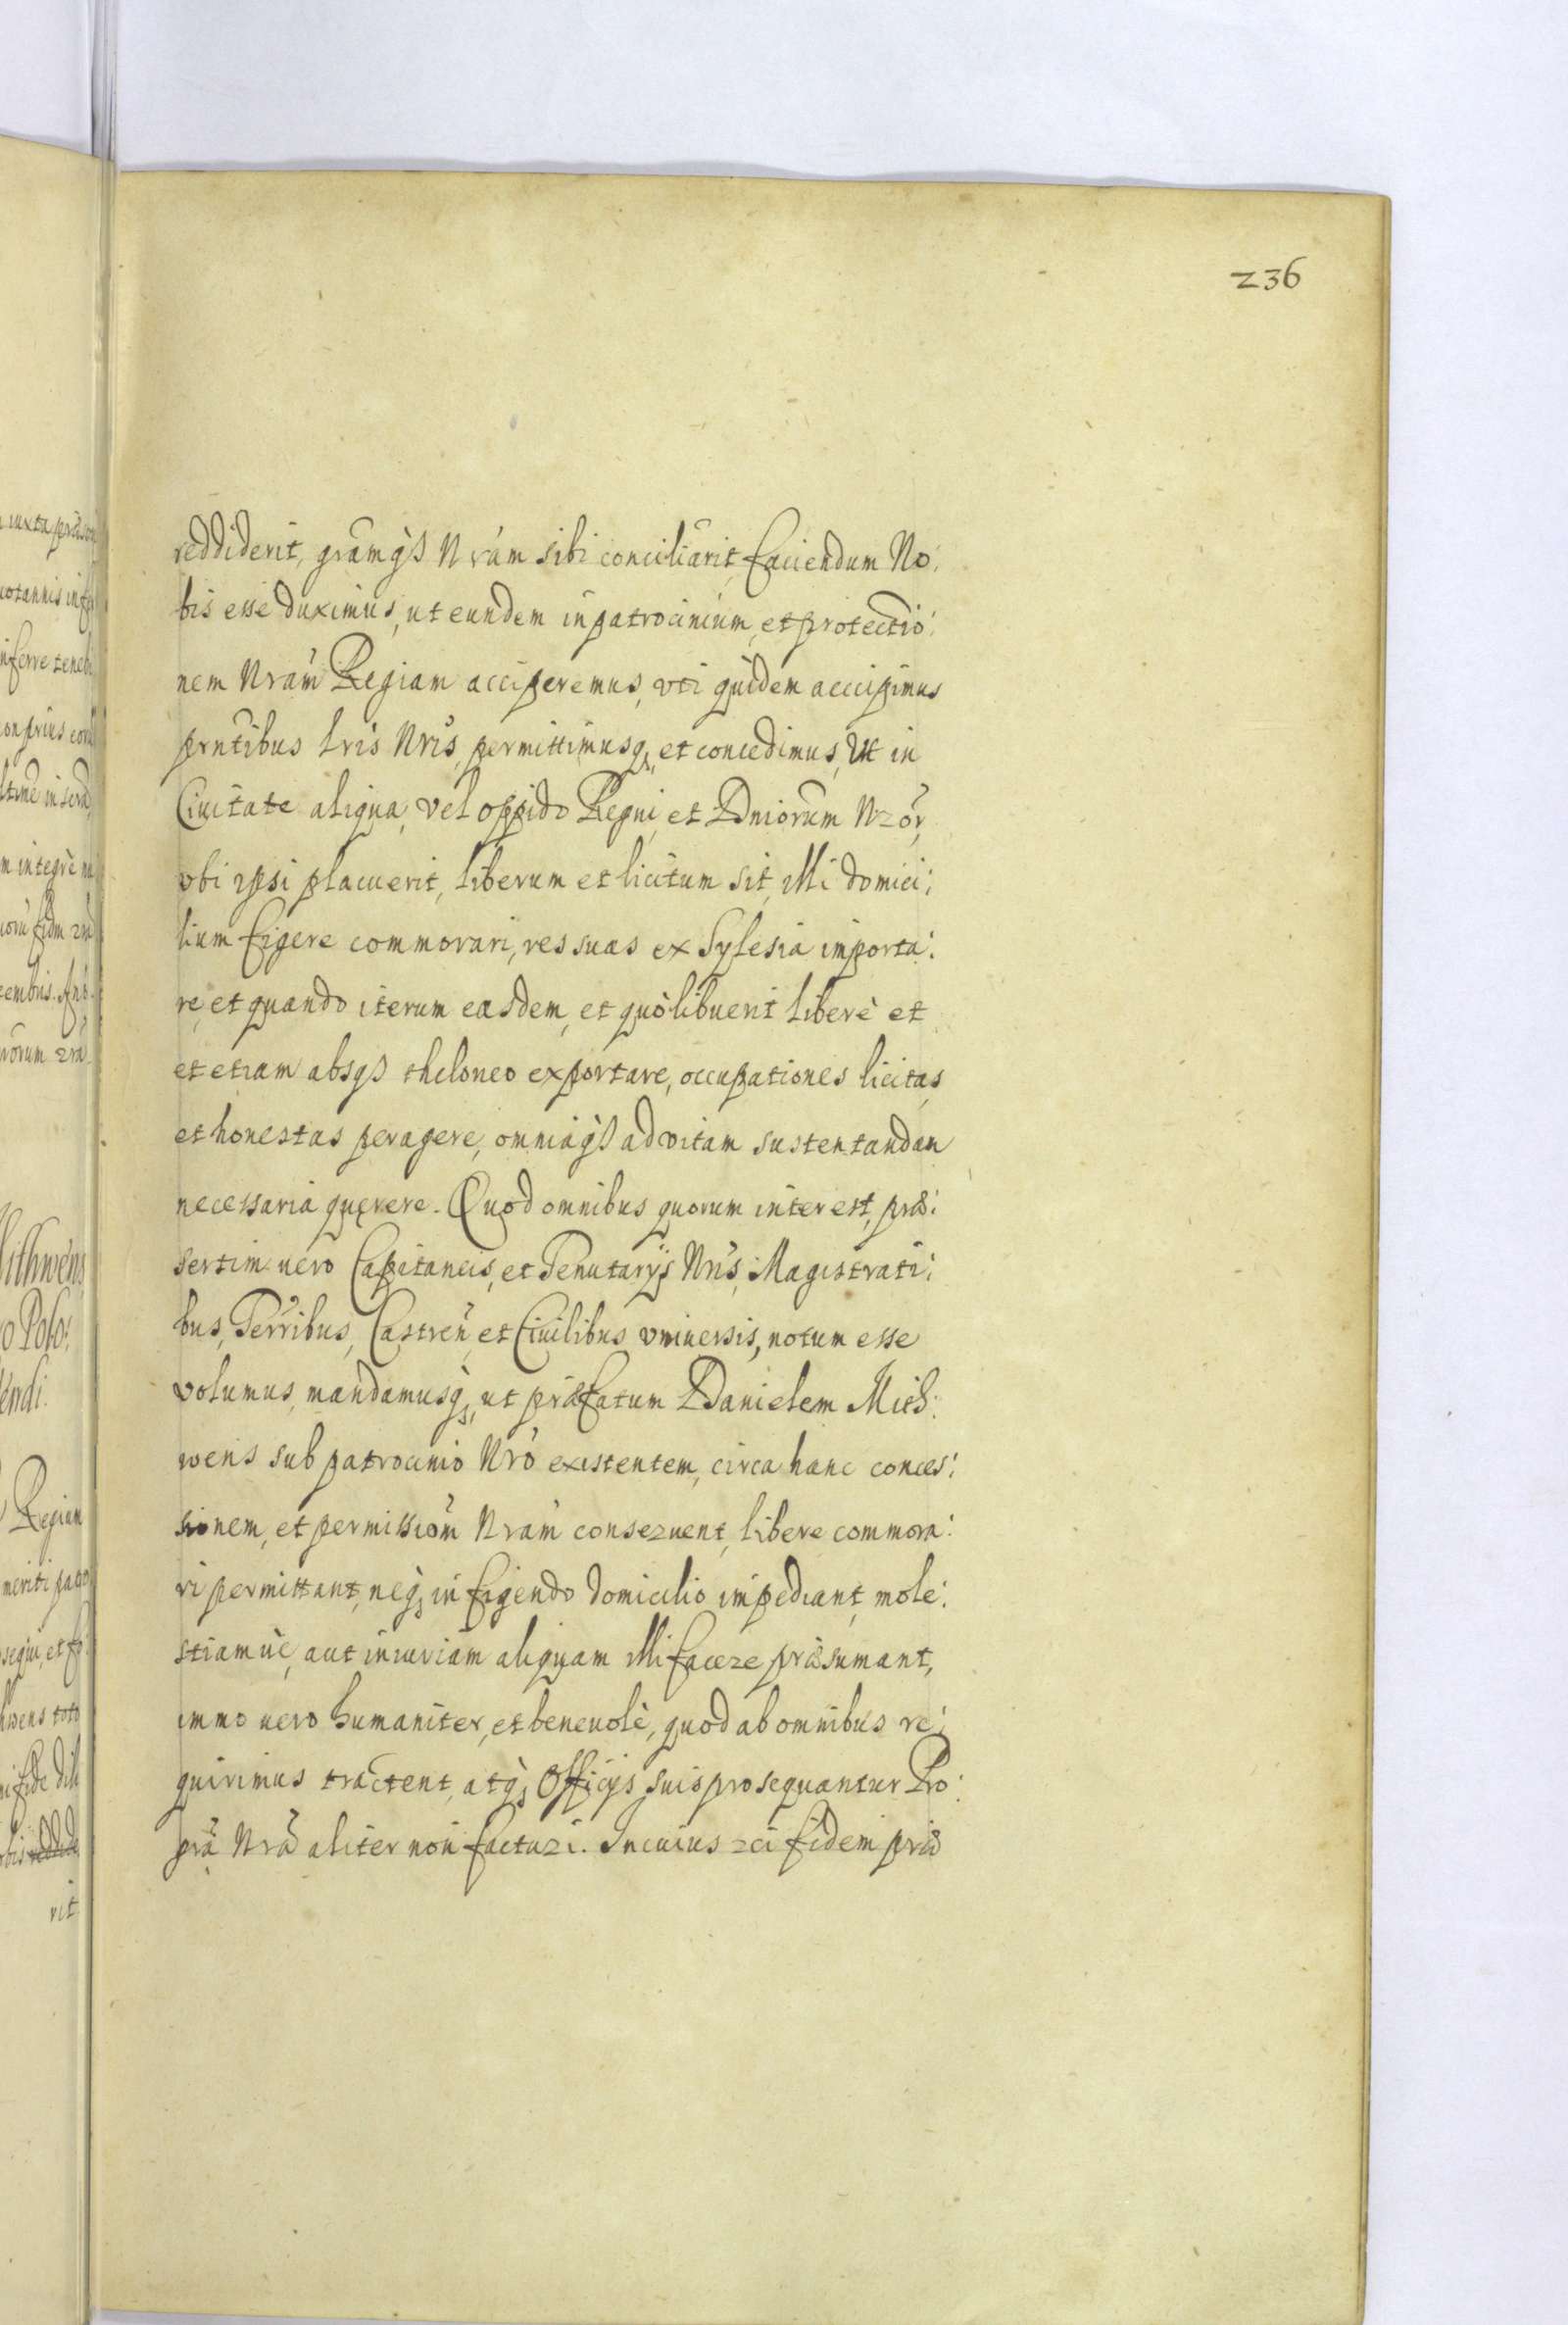 236
reddiderit, grãmq3 Nrãm sibi conciliarit, faciendum No:
bis esse duximus, ut eundem in patrocinium, et protectio:
nem Nrãm Regiam acciperemus, vti quidem accipimus
prntibus Lris Nris, permittimusq3, et concedimus, Ut in
Ciuitate aliqua, vel oppido Regni, et Dniorum Nror,
vbi ipsi placuerit, liberum et licitum sit, illi domici:
lium figere commorari, res suas ex Sylesia importa:
re, et quando iterum easdem, et quò libuerit liberè et
et etiam absq3 theloneo exportare, occupationes licitas,
et honestas peragere, omniaq3 ad vitam sustentandam
necessaria quęrere. Quod omnibus quorum interest, præ:
sertim uero Capitaneis, et Tenutarijs Nris, Magistrati:
bus, Terribus, Castren et Ciuilibus vniuersis, notum esse
volumus, mandamusq3, ut præfatum Danielem Mith:
wens sub patrocinio Nro existentem, circa hanc conces:
sionem, et permissiom Nram conseruent, libere commora:
ri permittant, neq3 in figendo domicilio impediant, mole:
stiamuè, aut iniuriam aliquam illi facere præsumant,
immo uero humaniter, et beneuolè, quod ab omnibus re:
quirimus tractent, atq3 Officijs suis prosequantur Pro:
grã Nrã aliter non facturi. In cuius rei fidem præ